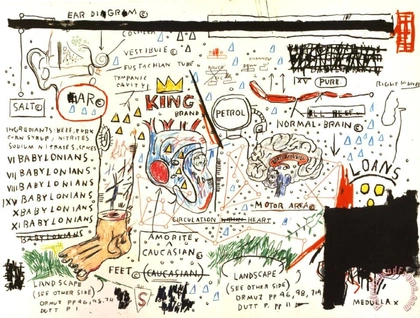 EAR DIAGRAM ©
COCHLEA
VESTIBULE ©
EUSTACHIAN TUBE
TYMPANIC
CAVITY
SALT ©
EAR ©
KING
BRAND
PETROL
XV PURE
ALL BEEF
NORMAL BRAIN ©
INGREDIENTS: BEEF, PORK
CORN SYRUP, NITRITES
SODIUM NITRATES, SPICES
VI BABYLONIANS
VII BABYLONIANS
VIII BABYLONIANS
IX BABYLONIANS
X BABYLONIANS
XI BABYLONIANS
BABYLONIANS
LOANS
MOTOR AREA ©
CIRCULATION HEART
AMORITE
CAUCASIAN ©
FEET © CAUCASIAN
LANDSCAPE
(SEE OTHER SIDE)
ORMUZ PP 96, 98, 70
DUTT P 1
S
LANDSCAPE
(SEE OTHER SIDE)
ORMUZ PP 96, 98, 70
DUTT P. P 11
MEDULLA